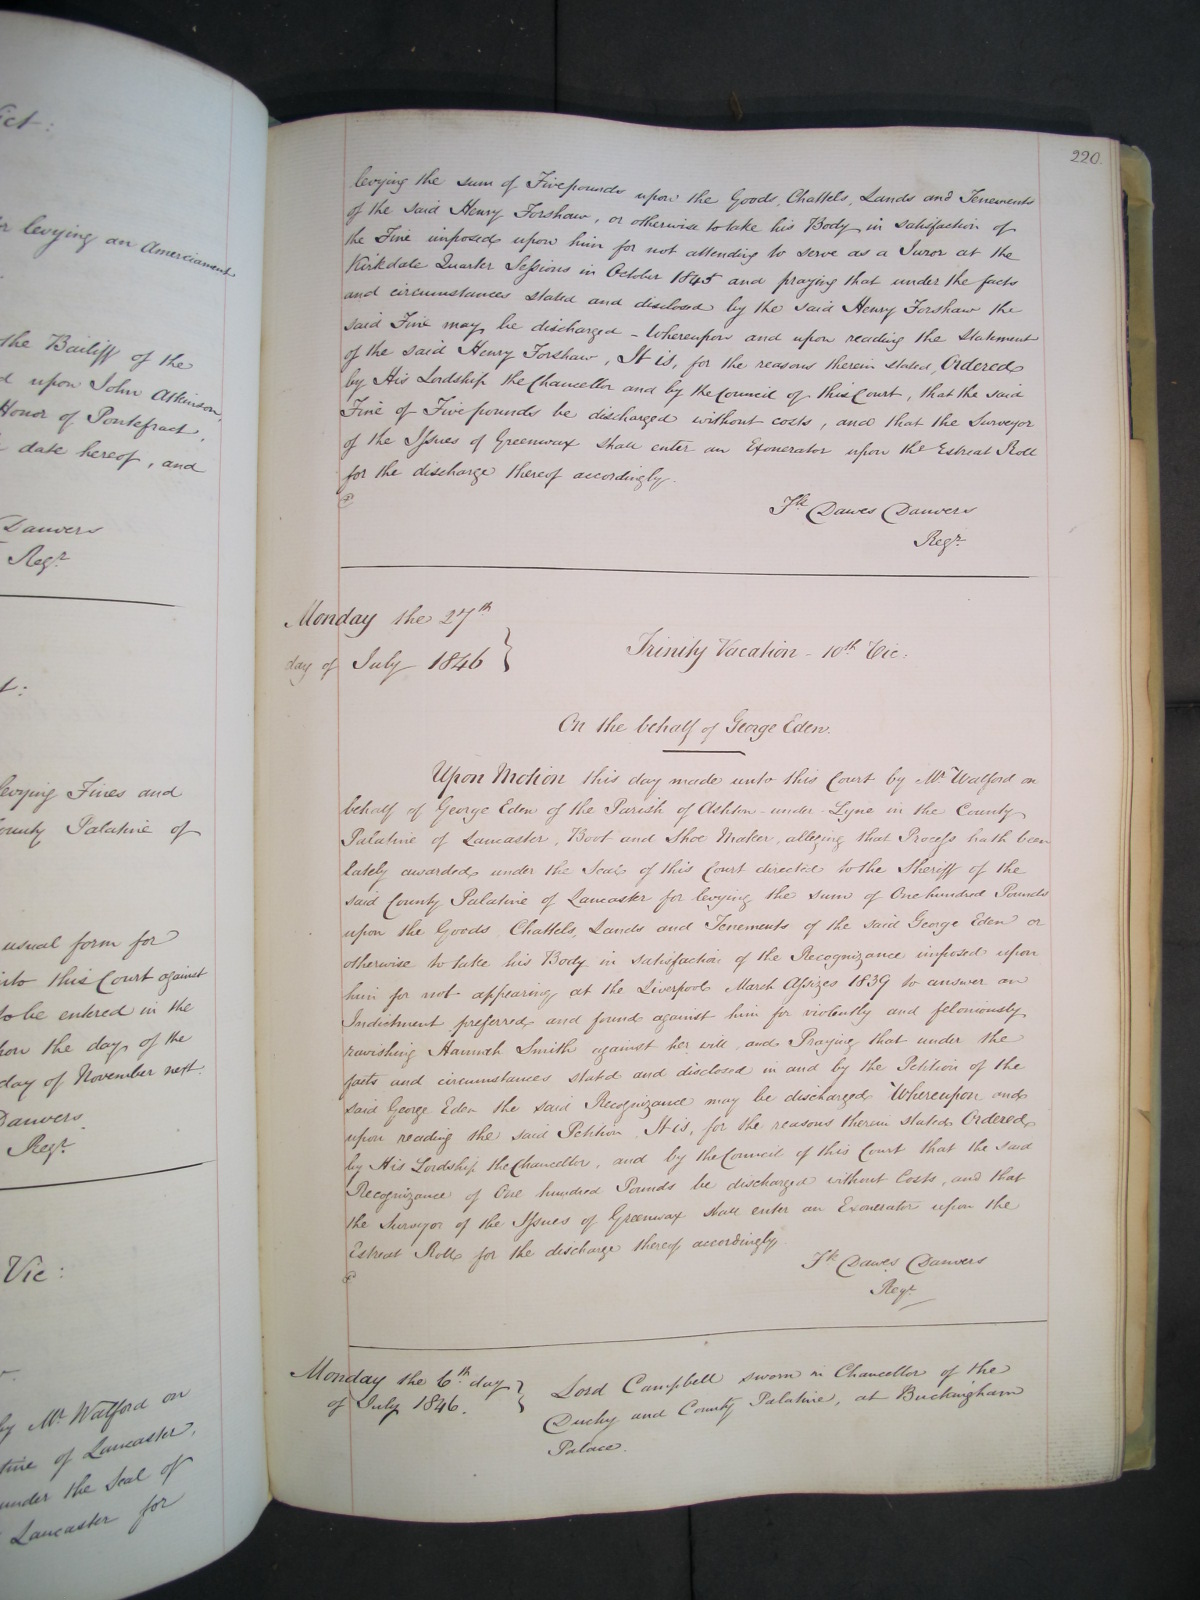 ict:
r levying an Amerciament
the Bailiff of the
d upon John Atkinson,
Honor of Pontefract,
date hereof, and
Danvers
Regr.
t:
levying Fines and
County Palatine of
usual form for
into this Court against
to be entered in the
upon the day of the
day of November next.
Danvers
Regr.
Vic:
by Mr. Walford on
tine of Lancaster,
under the Seal of
Lancaster for
220.
levying the sum of Five pounds upon the Goods, Chattels, Lands and Tenements
of the said Henry Forshaw, or otherwise to take his Body in satisfaction of
the Fine imposed upon him for not attending to serve as a Juror at the
Kirkdale Quarter Sessions in October 1845 and praying that under the facts
and circumstances stated and disclosed by the said Henry Forshaw the
said Fine may be discharged – Whereupon and upon reading the Statement
of the said Henry Forshaw, It is, for the reasons therein stated, Ordered
by His Lordship the Chancellor and by the Council of this Court, that the said
Fine of Five pounds be discharged without costs, and that the Surveyor
of the Issues of Greenwax shall enter an Exonerator upon the Estreat Roll
for the discharge thereof accordingly.
Fk Dawes Danvers
Regr.
Monday the 27th
day of July 1846
Trinity Vacation – 10th Vic:
On the behalf of George Eden.
Upon Motion this day made unto this Court by Mr. Walford on
behalf of George Eden of the Parish of Ashton-under-Lyne in the County
Palatine of Lancaster, Boot and Shoe Maker, alleging that Process hath been
lately awarded under the Seal of this Court directed to the Sheriff of the
said County Palatine of Lancaster for levying the sum of One hundred Pounds
upon the Goods, Chattels, Lands and Tenements of the said George Eden or
otherwise to take his Body in satisfaction of the Recognizance imposed upon
him for not appearing at the Liverpool March Assizes 1839 to answer an
Indictment preferred and found against him for violently and feloniously
ravishing Hannah Smith against her will and Praying that under the
facts and circumstances stated and disclosed in and by the Petition of the
said George Eden the said Recognizance may be discharged Whereupon and
upon reading the said Petition, It is, for the reasons therein stated Ordered
by His Lordship the Chancellor, and by the Council of this Court that the said
Recognizance of One hundred Pounds be discharged without Costs, and that
the Surveyor of the Issues of Greenwax shall enter an Exonerator upon the
Estreat Roll for the discharge thereof accordingly.
Fk Dawes Danvers
Regr
Monday the 6th day
of July 1846.
Lord Campbell sworn in Chancellor of the
Duchy and County Palatine, at Buckingham
Palace.